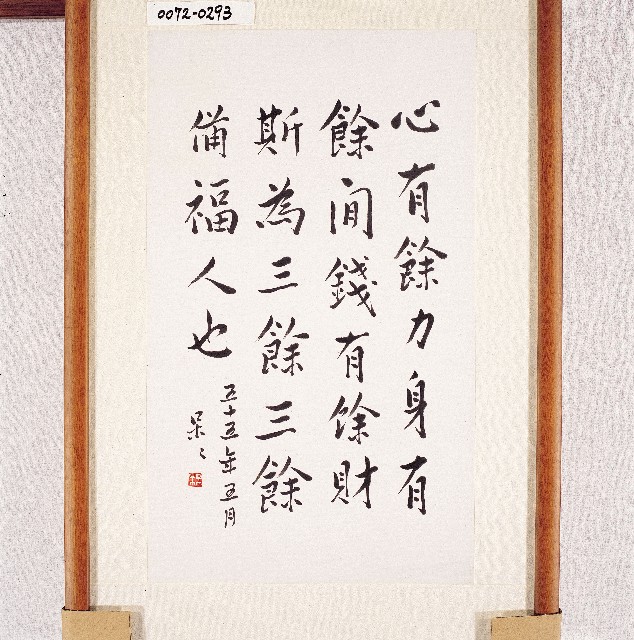 0072-0293
心有餘力身有
餘间錢有馀財
斯為三餘三餘
備福人也
五十五年五月